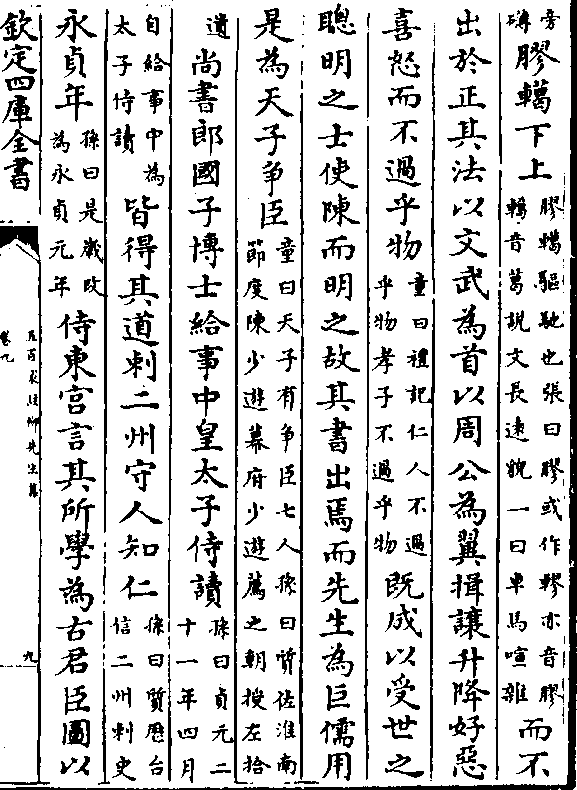 旁礴膠轕下上膠轕驅馳也張曰膠或作轇亦音膠轕音葛說文長遠貌一曰車馬喧雜而不
出於正其法以文武為首以周公為翼揖讓升降好惡
喜怒而不過乎物童曰禮記仁人不過乎物孝子不過乎物既成以受世之
聰明之士使陳而明之故其書出焉而先生為巨儒用
是為天子爭臣童曰天子有爭臣七人孫曰質佐淮南節度陳少遊幕府少遊薦之朝授左拾
遺尚書郎國子博士給事中皇太子侍讀孫曰貞元二十一年四月
自給事中為太子侍讀皆得其道刺二州守人知仁孫曰質歷台信二州刺史
永貞年孫曰是歲改為永貞元年侍東宮言其所學為古君臣圖以
欽定四庫全書
五百家註柳先生集
卷九
九